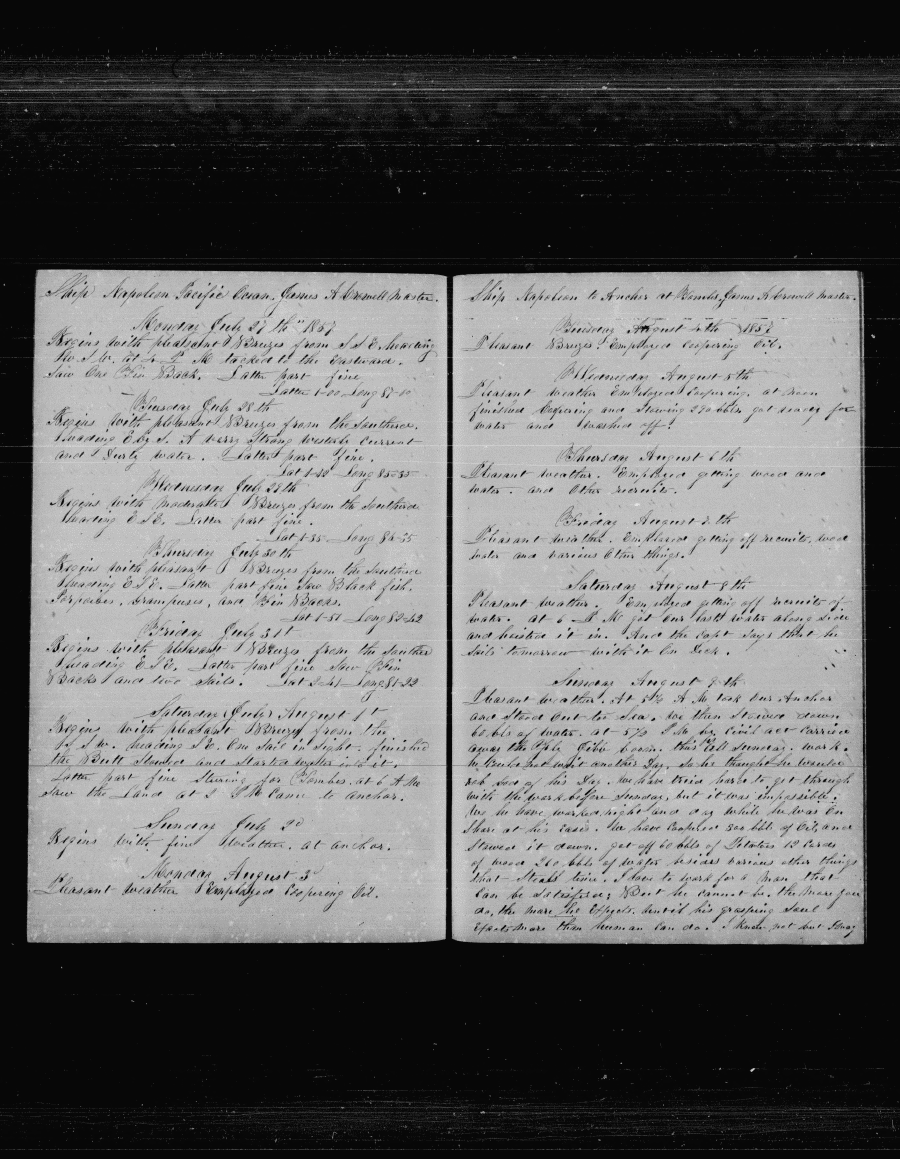 Ship Napoleon Pacific Ocean. James A Crowell Master.
Monday July 27th 1857
Begins with pleasant Breezes from S.S.E. heading
the S.W. at 4 P.M tacked to the Eastward.
Saw One Fin Back. Latter part fine
Latter 1-00 Long 87-10
Tuesday July 28th
Begins with pleasant Breezes from the Southard.
heading E by S. A verry Strong westerly Current
and Durty water. Latter part fine.
Lat 1-42 Long 85-35
Wednesday July 29th
Begins with moderate Breezes from the Southard
heading E.S.E. Latter part fine.
Lat 1-35 Long 84-35
Thursday July 30th
Begins with pleasant Breezes from the Southard
heading E.S.E. Latter part fine Saw Black fish.
Porpoises, Grampuses, and Fin Backs.
Lat 1-51 Long 82-42
Friday July 31st
Begins with pleasant Breezes from the Souther
heading E.S.E. Latter part fine Saw Fin
Backs and two Sails. Lat 2-41 Long 81-22
Saturday (July) August 1st
Begins with pleasant Breezes from the
S.S.W. heading S.E. One Sail in Sight. finished
the Butt Stowed and Started water into it.
Latter part fine Stering for Tombes, at 6 A Me
Saw the Land at 2 P.M. Came to anchor.
Sunday July 2d
Begins with fine Weather. at anchor.
Monday August 3d
Pleasant weather Employed Coopering Oil.
Ship Napoleon to Anchor at Tombes James A Crowell Master.
Tuesday August 4th 1857
Pleasant Breezes Employed Coopering Oil.
Wednesday August 5th
Pleasant weather Employed Coopering. at Noon
finished Coopering and Stowing bbls got ready for
water and washed off.
Thursday August 6th
Pleasant weather. Employed getting wood and
water. and Other recruits.
Friday August 7th
Pleasant weather. Employed getting off recruits, wood
water and various Other things.
Saturday August 8th
Pleasant weather. Employed getting off recruits of
water. at 6 P Me got Our last water along side
and hoisted it in. And the Capt Says that he
Sails tomorrow with it On Deck.
Sunday August 9th
Pleasant weather. At 5½ A Me took Our Anchor
and Stood Out to Sea. we then Stowed down
60 bbls of water. at 5½ P Me by Civil act Carried
away the Jibe boom. this all Sunday. work.
would not wait another Day, So he thought he would
rob God of his Day. we have tried hard to get through
with the work before Sunday, but it was impossible.
We have worked night and day while he was On
Shore at his ease. We have Coopered 300 bbl of Oil and
Stowed it down. got off 60 bbls of Potatoes 12 Cords
of wood 260 bbls of water besides various other things
that Nead time. I love to work for a Man that
Can be Satisfied; But he cannot be, the more you
do, the more he Expects. until his grasping Soul
Expects more than human Can do. I know not but I may